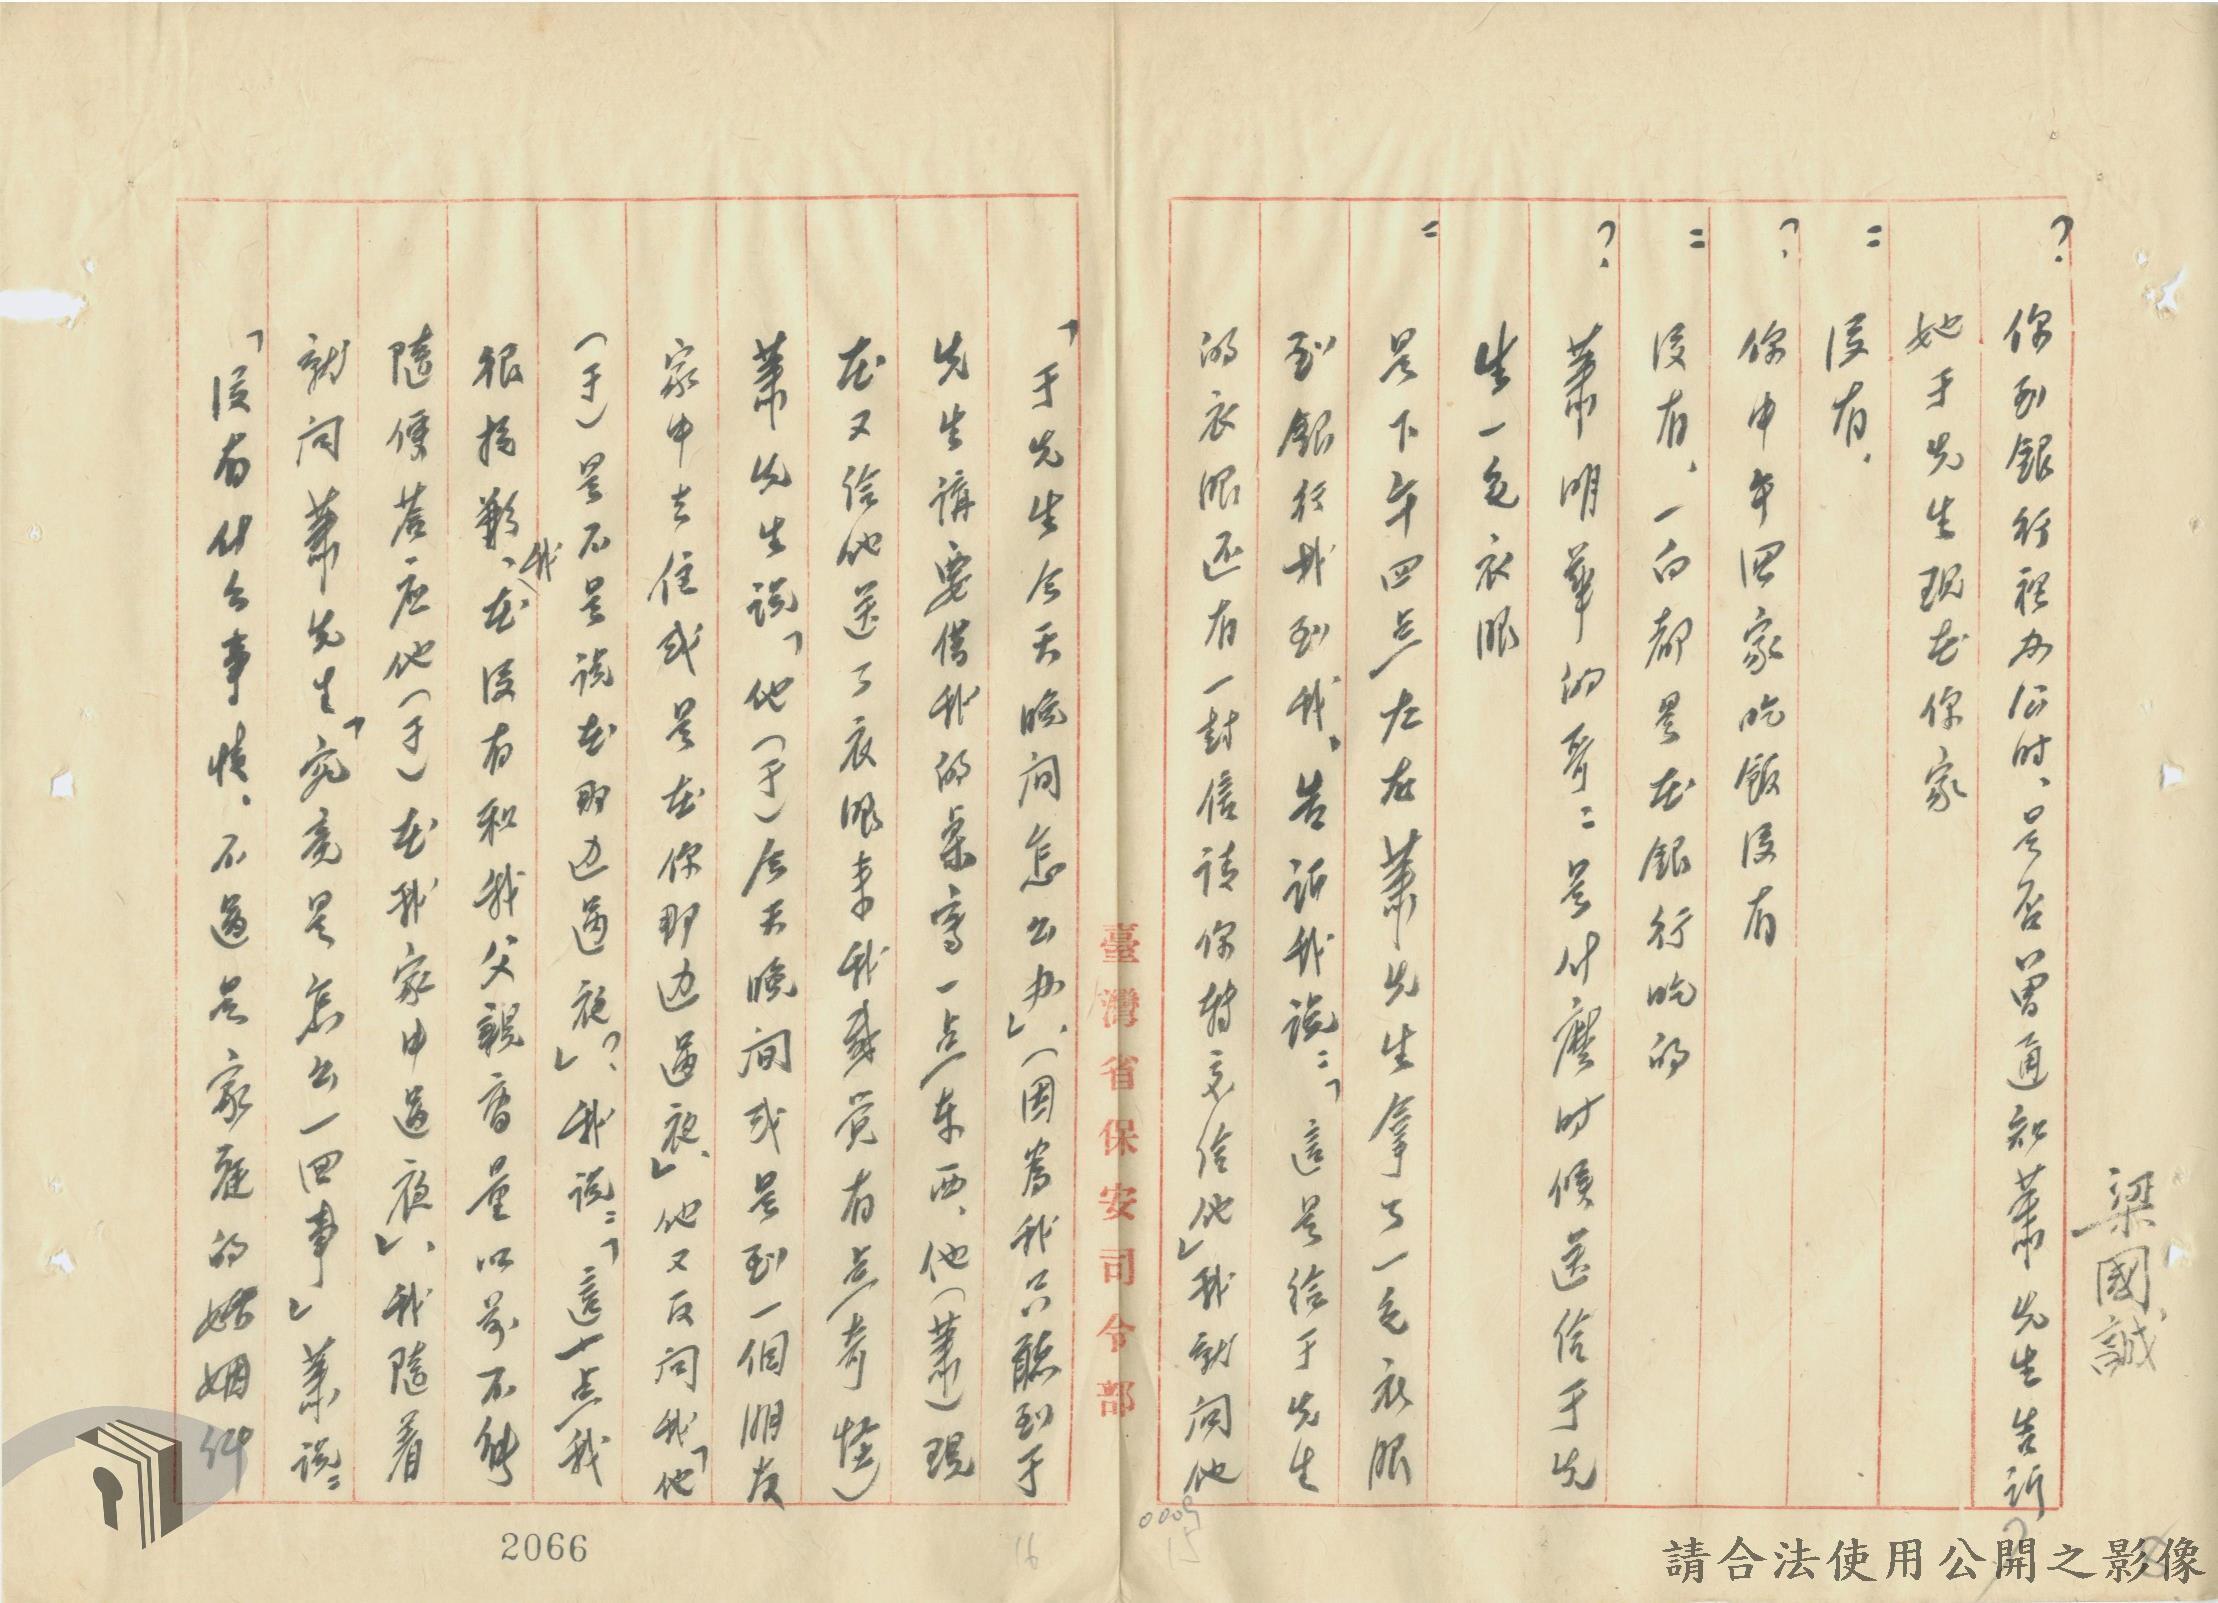 梁國誠
? 你到銀行裡办公时、是否曽通知萧先生告訴
她于先生現在你家
= 没有、
? 你中午囬家吃飯没有
= 没有、一向都是在銀行吃的
? 萧明華的哥:是什麽时候送给于先
生一包衣服
= 是下午四点左右萧先生拿了一包衣服
到銀行找到我、告訴我說:「這是给于先生
的衣服还有一封信請你轉交给他」我就问他
臺灣省保安司令部
「于先生今天晚间怎么办」、(因為我只聽到于
先生講要借我的桌寫一点东西、他(萧)現
在又给他送了衣服來我感覚有点奇怪)
萧先生說「他(于)今天晚间或是到一個朋友
家中去住或是在你那边過夜」、他又反问我「他
(于)是不是說在那边過夜」?我說:「這一点我
很抱歉、我在没有和我父親商量以前不能
隨便荅应他(于)在我家中過夜」、我隨着
就问萧先生「究竟是怎么一囬事」萧說:
「没有什么事情、不過是家庭的婚姻糾
2066
16
0009
15
請合法使用公開之影像